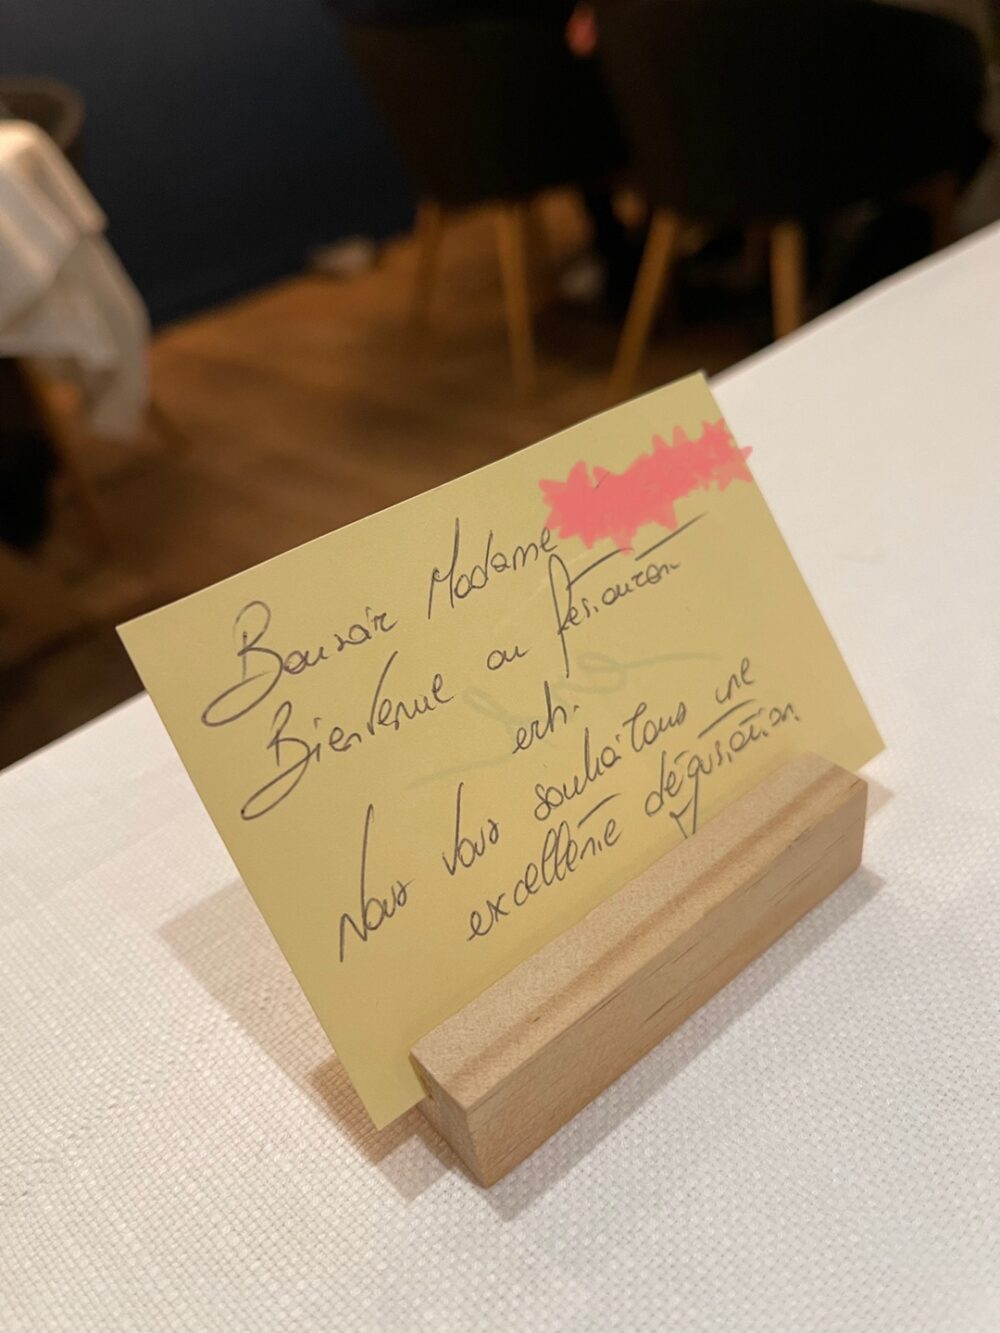 Bonsoir Madame
Bienvenue au Restaurant
erh.
Nous vous souhaitons une
excellente dégustation.